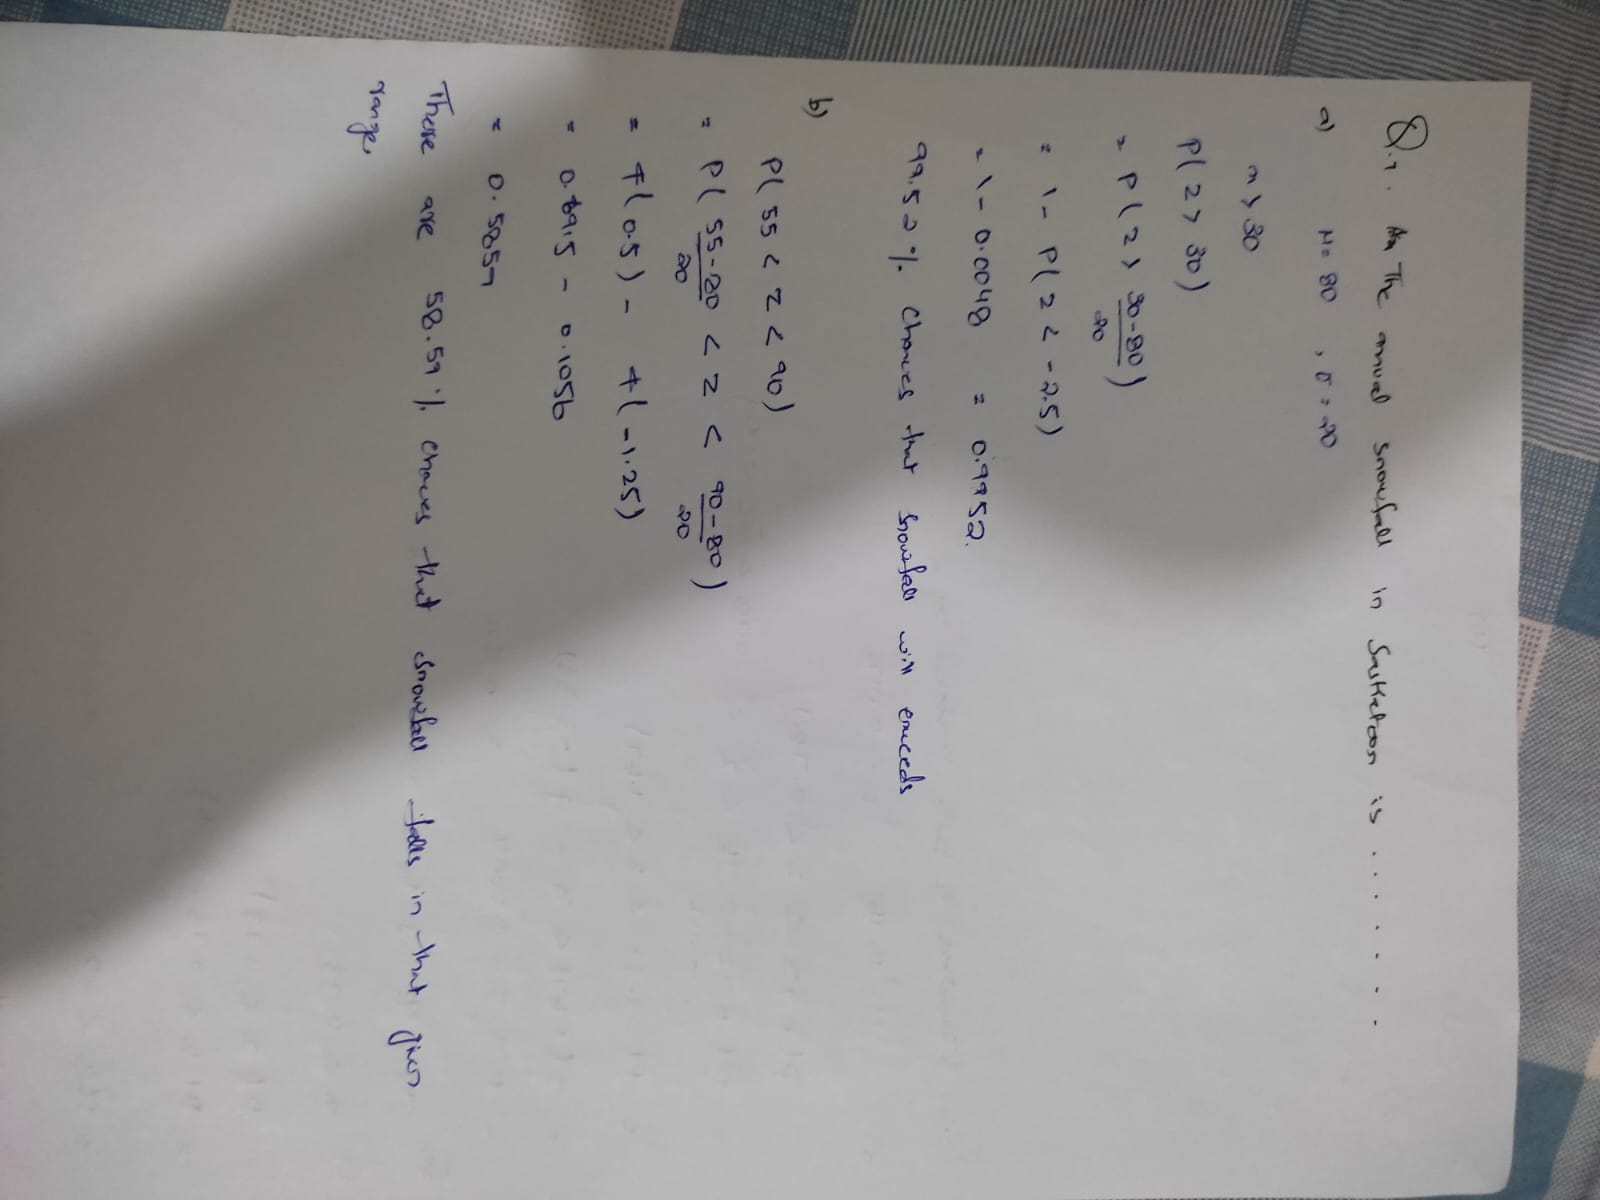 Q.7. The annual snowfall in Sasketoon is ........
a) μ = 80 , σ = 20
x > 30
P( z > 30 )
= P ( z > 30-80 / 20 )
= 1 - P( z < -2.5)
= 1 - 0.0048 = 0.9952.
99.52 %. Chances that snowfall will exceeds
b)
P( 55 < z < 90 )
= P( 55-80 / 20 < z < 90-80 / 20 )
= F( 0.5 ) - F( -1.25 )
= 0.6915 - 0.1056
= 0.5859
There are 58.59 %. chances that snowfall falls in that given
range